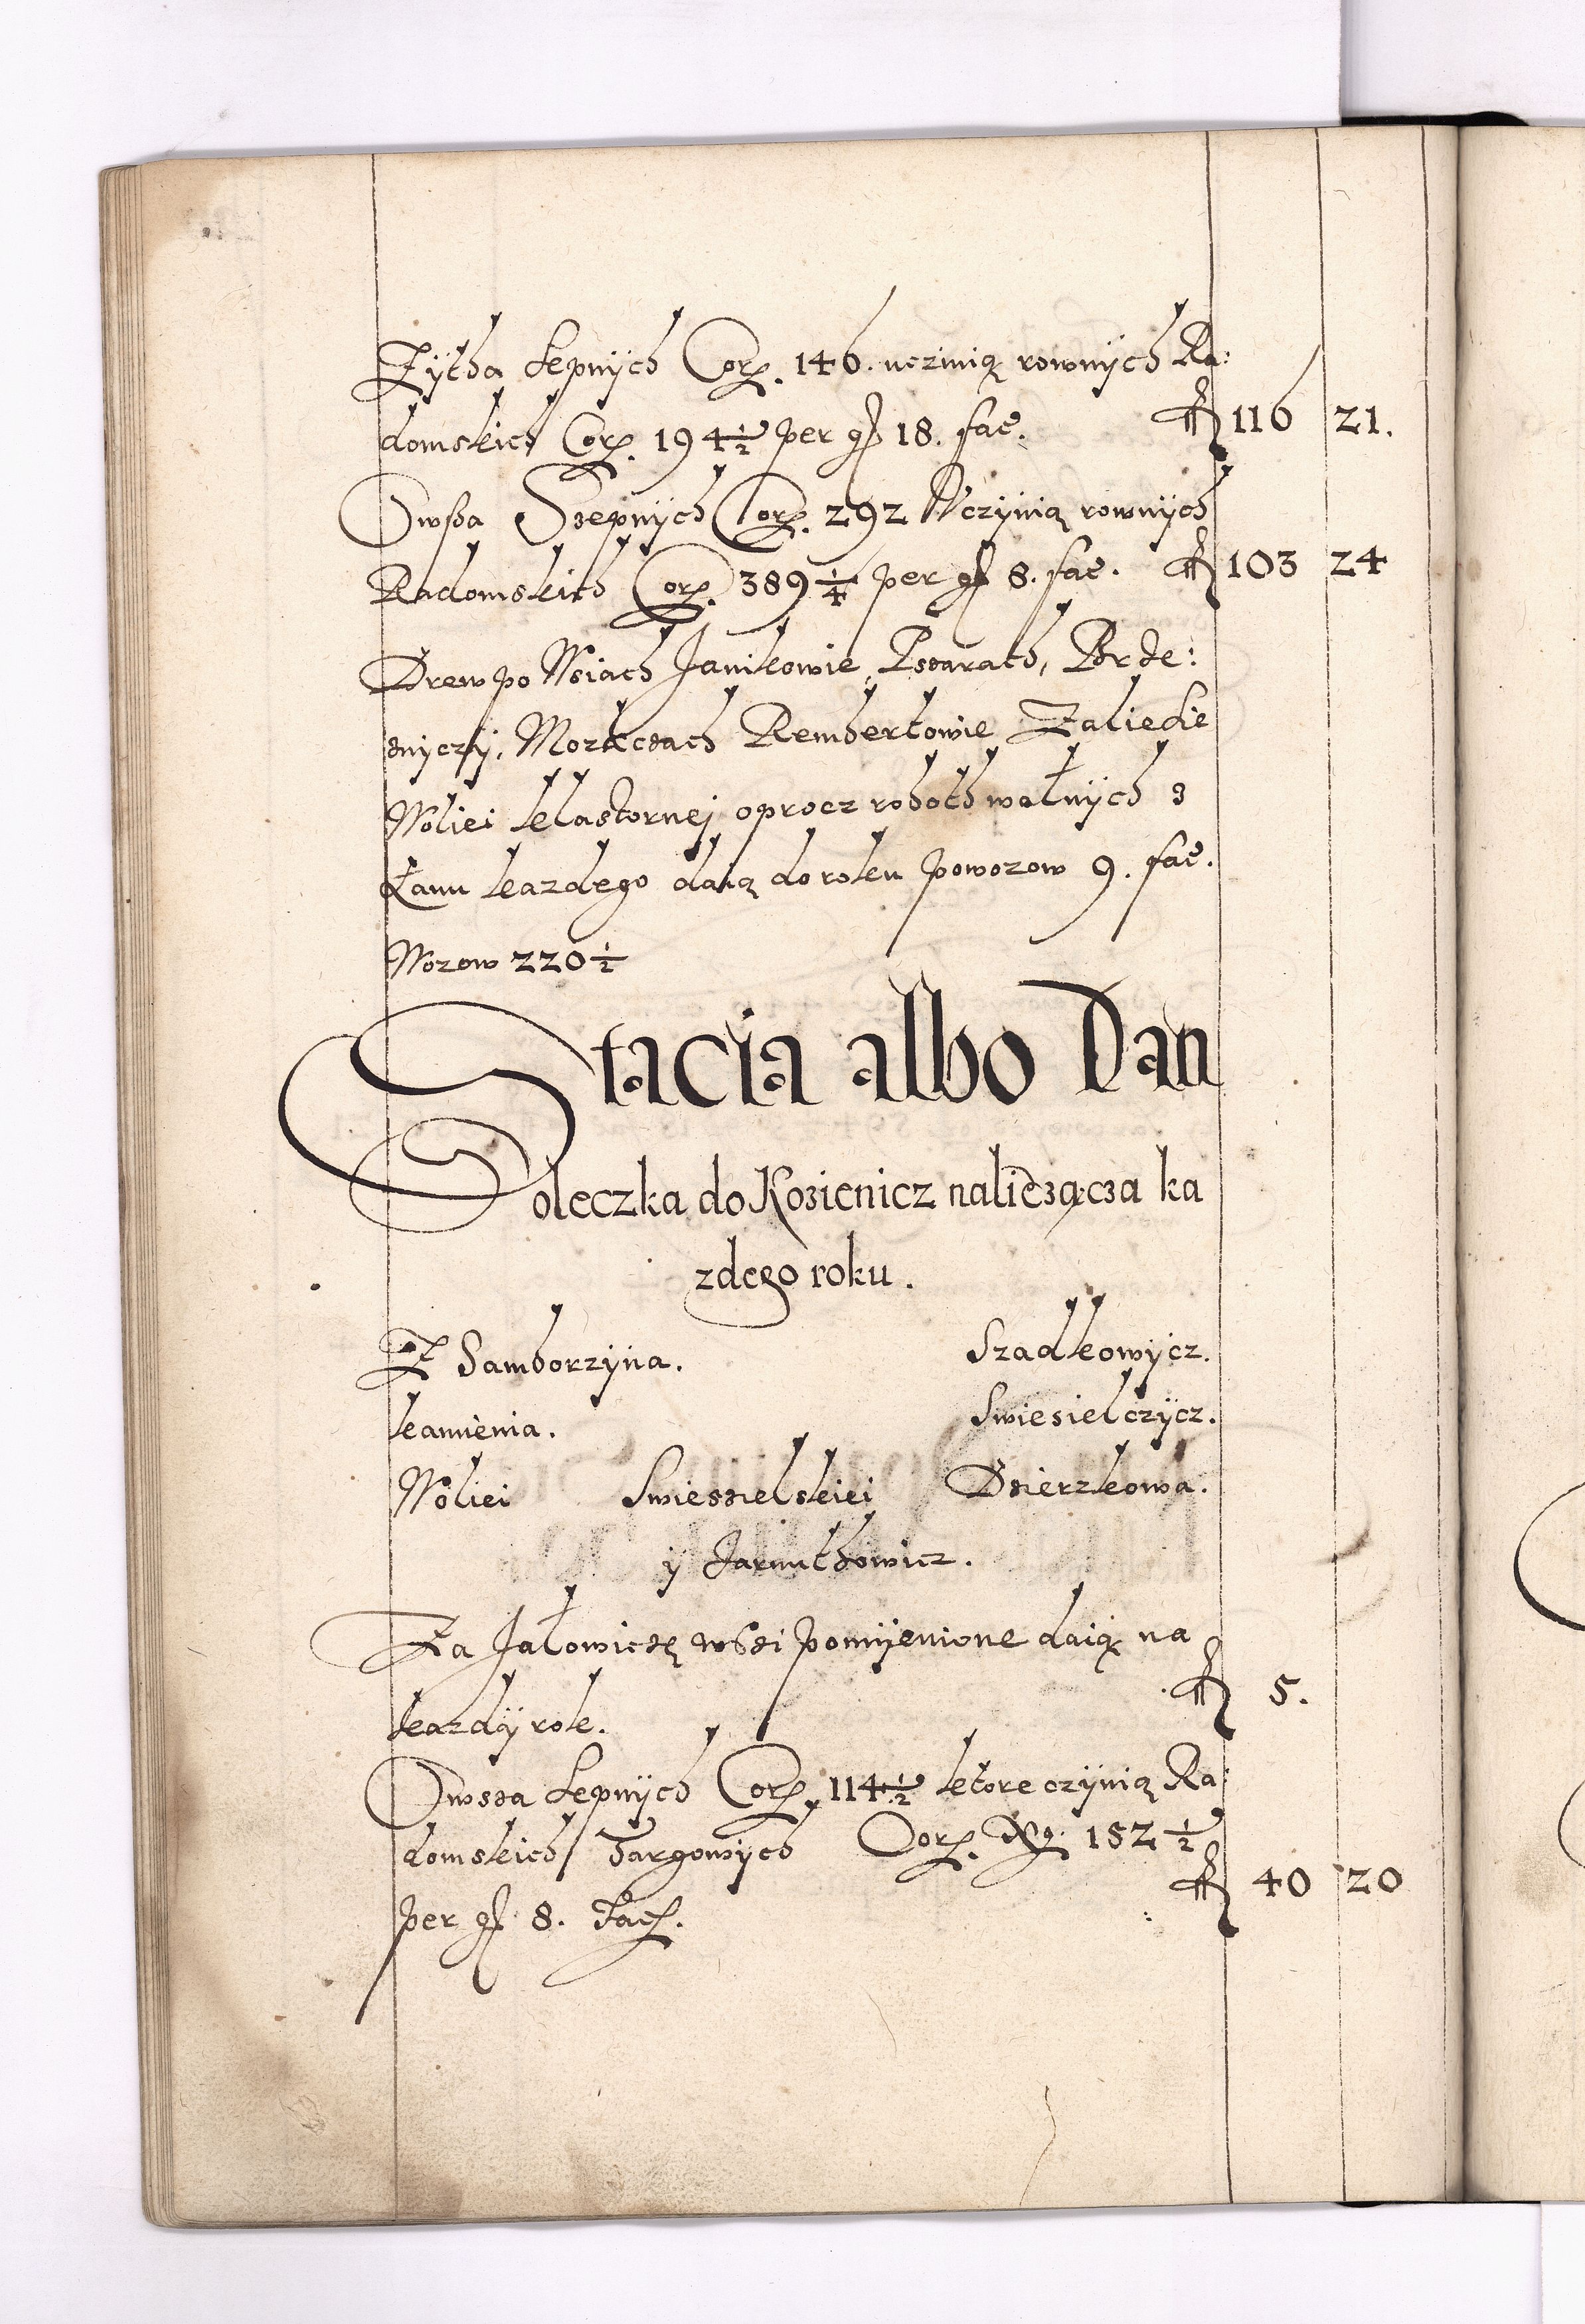 Zytha Sepnych Corz. 146. uczinią rownych Ra:
domskich Corz. 194½ per gr 18. fac. fl 116 21.
Owsza Szepnych Corz. 292 Uczynią rownych
Radomskich Corz. 389¼ per gr 8. fac. fl 103 24
Drew po Wsiach Janikowie, Psarach, Brze:
znyczy, Mozdzach Rembertowie Zalieśie
Woliei klastornej oprocz roboth walnych z
Łanu kazdego daią do roku powozow 9. fac.
Wozow 220½
Stacia albo Dan
Soleczka do Kozienicz naliezącza ka
zdego roku.
Z Samborzyna. Szadkowycz.
kamienia. Swiesielczycz.
Woliei Swieszielskiei Dzierzkowa.
y Jarnuthowicz.
Za Jałowiczę wssi pomyenione daią na
kazdy rok. fl 5.
Owssa Sepnych Corz. 114½ ktore czynią Ra:
domskich Targowych Corz. 152½
per gr 8. Fac. fl 40 20